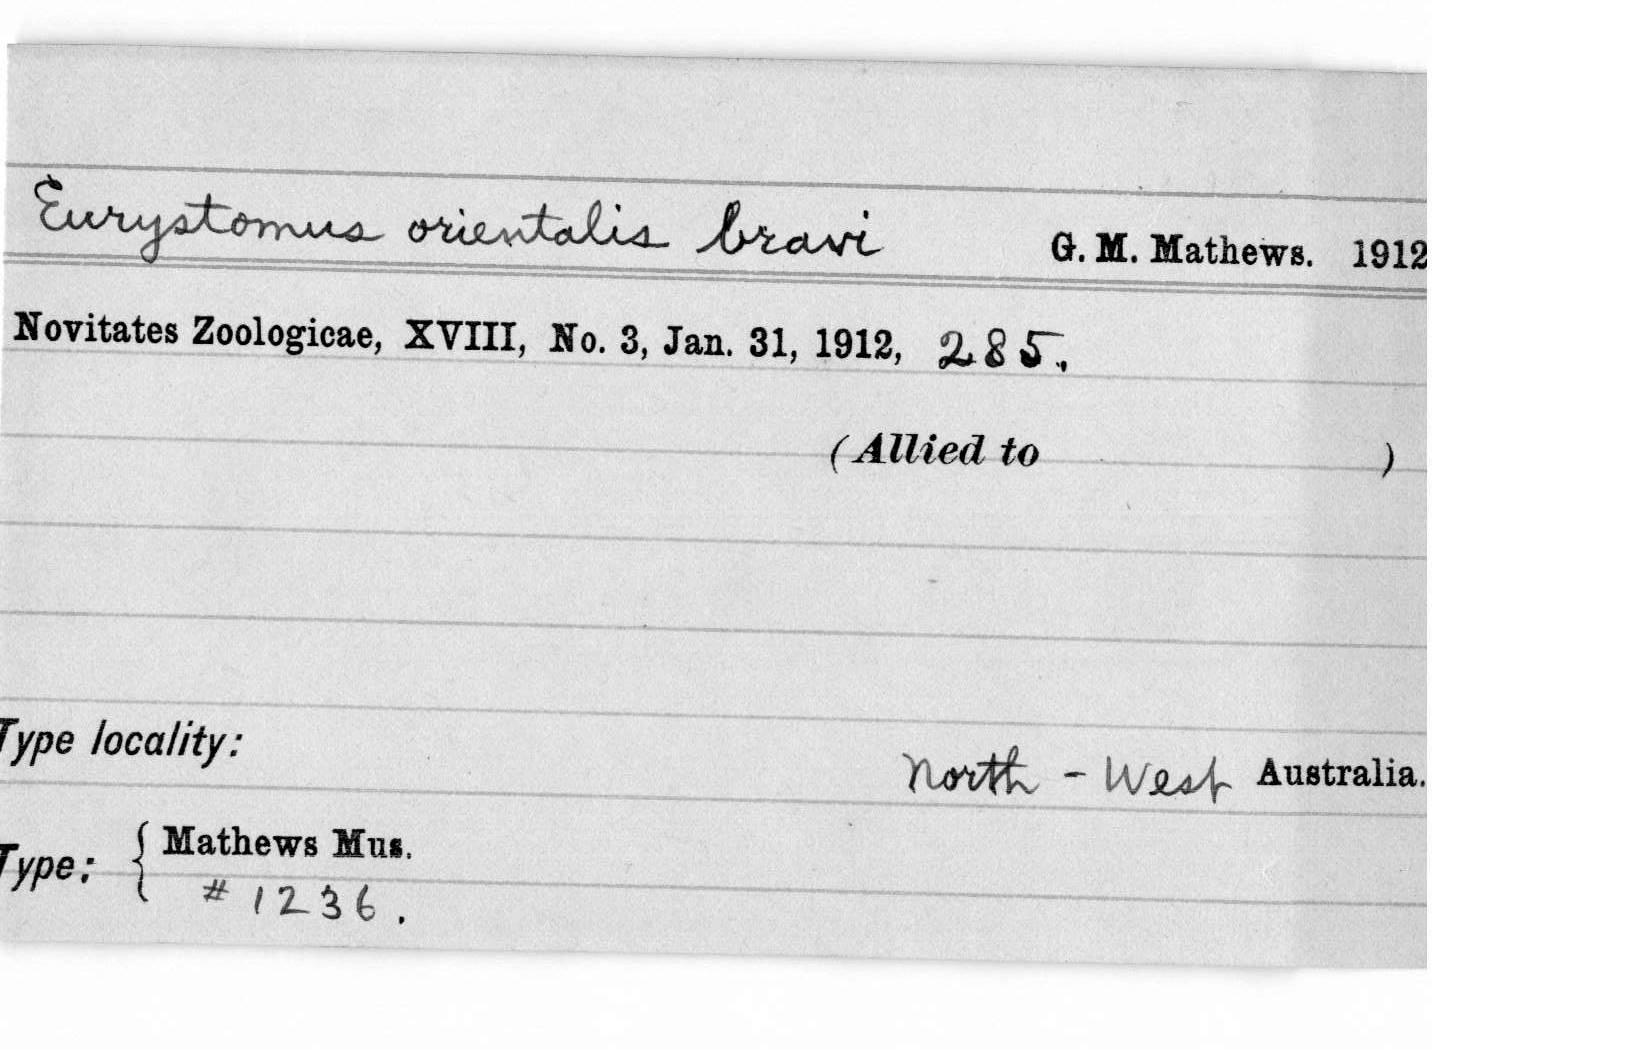 Eurystomus orientalis bravi G. M. Mathews. 1912
Novitates Zoologicae, XVIII, No. 3, Jan. 31, 1912, 285.
(Allied to )
Type locality:
North - West Australia.
Type: { Mathews Mus.
# 1236.